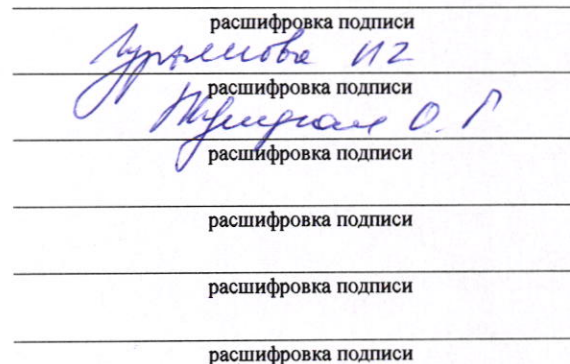 расшифровка подписи
расшифровка подписи
О.Г
расшифровка подписи
расшифровка подписи
расшифровка подписи
расшифровка подписи